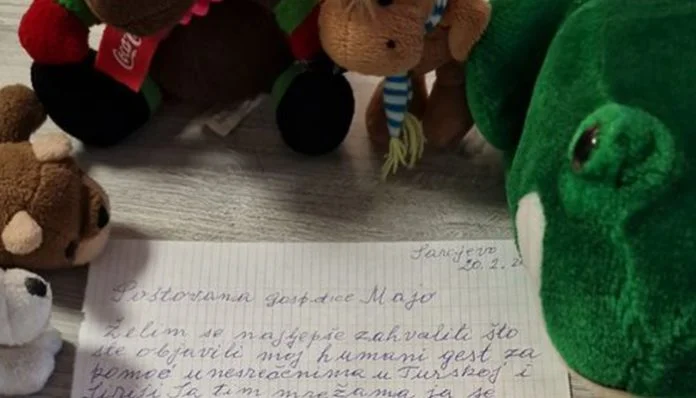 Coca
Sarajevo
20. 2. 2
Poštovana gospođice Majo
Želim se najljepše zahvaliti što
ste objavili moj humani gest za
pomoć unesrećnima u Turskoj i
Siriji. Ja tim mrežama ja se